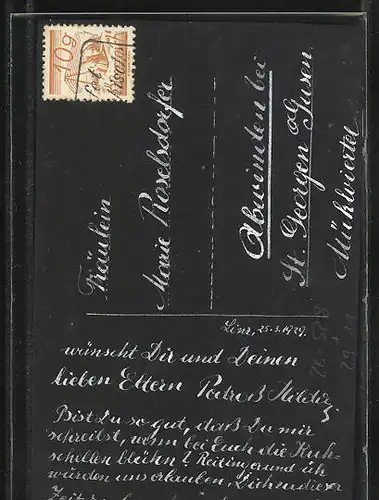 10g
Fräulein
Marie Roselsdorfer
Abwinden bei
St. Georgen a/G Gusen
Mühlviertel
Linz, 25.3.1929.
wünscht Dir und Deinen
lieben Eltern
Bist Du so gut, daß Du mir
schreibst, wenn bei Euch die Kuh-
schellen blühn? Reitinger und ich
würden uns erlauben, Dich zu dieser
Zeit